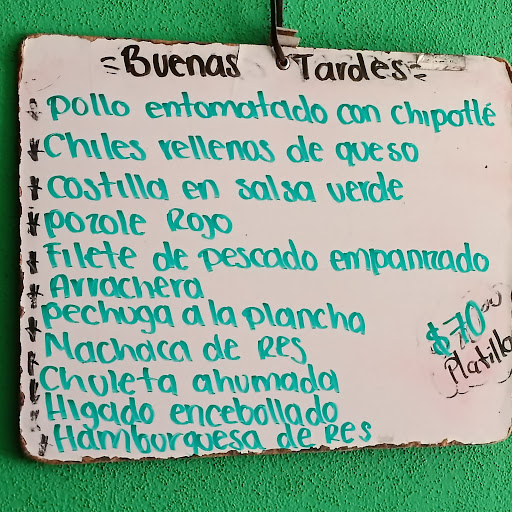 =Buenas Tardes=
* pollo entomatado con chipotlé
* Chiles rellenos de queso
* costilla en salsa verde
* pozole Rojo
* Filete de pescado empanizado
* Arrachera
* pechuga a la plancha
* Machaca de Res
* Chuleta ahumada
* Higado encebollado
* Hamburguesa de Res
$70.00
Platillo